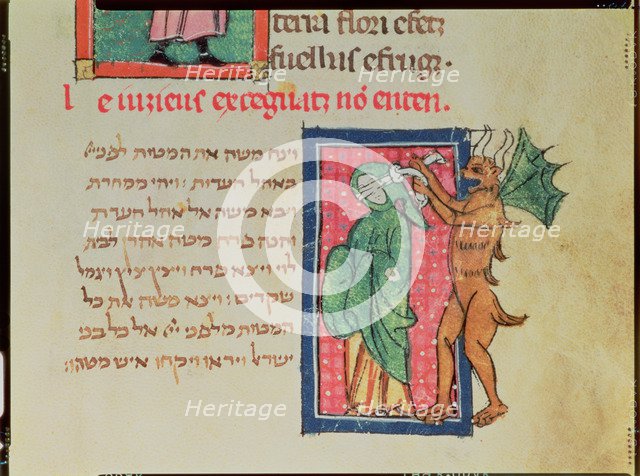 terra flori e fetz
fuellus e frugz.
le iuzieus exceguatz nó enten.
וינח משה את המטות לפני יי
באהל העדות: ויהי ממחרת
ויבא משה אל אהל העדת
והנה פרח מטה אהרן לבת
לוי ויצא פרח וייצץ ציץ ויגמל
שקדים: ויצא משה את כל
המטות מלפני יי אל כל בני
ישראל ויראו ויקחו איש מטהו:
Heritage Heritage
Heritage Heritage
Heritage Heritage